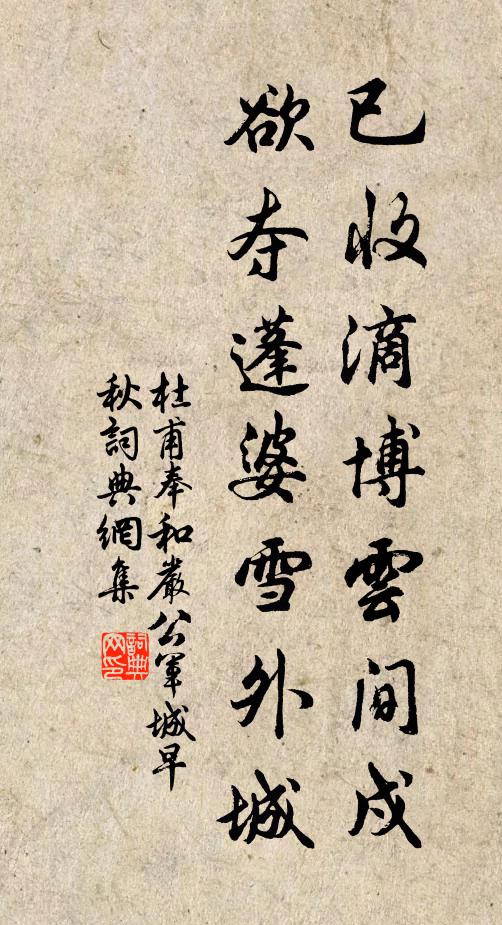 已收滴博雲間戍
欲夺蓬婆雪外城
杜甫奉和嚴公軍城早
秋詞典網集
詞典
网印